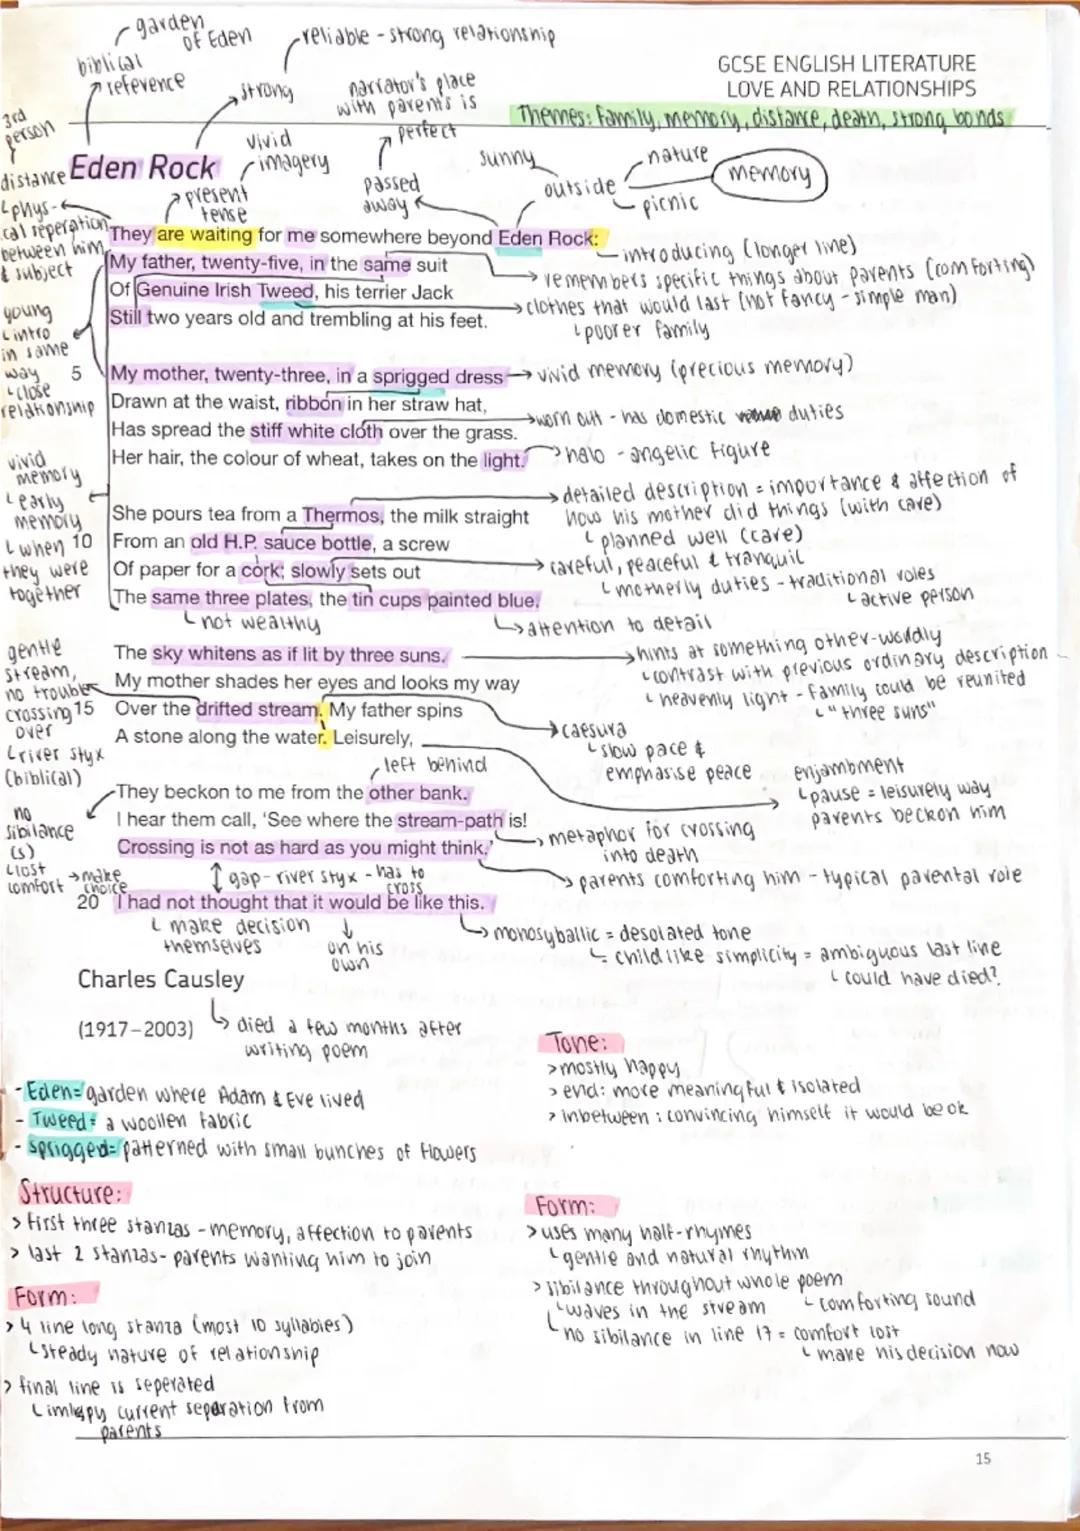 garden
of Eden
biblical
reference
reliable - strong relationship
strong
narrator's place
with parents is
perfect
GCSE ENGLISH LITERATURE
LOVE AND RELATIONSHIPS
Themes: family, memory, distance, death, strong bonds
3rd
person
distance
phys-
ical seperation
between him
& subject
Eden Rock
vivid
imagery
present
tense
passed
away
sunny
outside
nature
picnic
memory
They are waiting for me somewhere beyond Eden Rock:
introducing (longer line)
My father, twenty-five, in the same suit
remembers specific things about parents (comforting)
Of Genuine Irish Tweed, his terrier Jack
clothes that would last (not fancy - simple man)
poorer family
Still two years old and trembling at his feet.
young
intro
in same
way
close
relationship
5 My mother, twenty-three, in a sprigged dress
vivid memory (precious memory)
Drawn at the waist, ribbon in her straw hat,
worn out - has domestic duties
Has spread the stiff white cloth over the grass.
Her hair, the colour of wheat, takes on the light.
halo - angelic figure
vivid
memory
early
memory
when
they were
together
detailed description = importance & affection of
how his mother did things (with care)
planned well (care)
She pours tea from a Thermos, the milk straight
10 From an old H.P. sauce bottle, a screw
Of paper for a cork; slowly sets out
careful, peaceful & tranquil
motherly duties - traditional roles
active person
The same three plates, the tin cups painted blue.
not wealthy
attention to detail
gentle
stream,
no trouble
crossing
over
river styx
(biblical)
The sky whitens as if lit by three suns.
hints at something other-worldly
contrast with previous ordinary description
heavenly light - family could be reunited
"three suns"
My mother shades her eyes and looks my way
15 Over the drifted stream. My father spins
A stone along the water. Leisurely,
caesura
slow pace &
emphasise peace
enjambment
pause = leisurely way
parents beckon him
left behind
They beckon to me from the other bank.
I hear them call, 'See where the stream-path is!
Crossing is not as hard as you might think.'
metaphor for crossing
into death
parents comforting him - typical parental role
no
sibilance
(s)
lost
comfort
make
choice
gap - river styx - has to
cross
20 I had not thought that it would be like this.
make decision
themselves
on his
own
monosyballic = desolated tone
childlike simplicity = ambiguous last line
could have died?
Charles Causley
(1917–2003)
died a few months after
writing poem
- Eden = garden where Adam & Eve lived
- Tweed = a woollen fabric
- Sprigged = patterned with small bunches of flowers
Tone:
> mostly happy
> end: more meaningful & isolated
> inbetween: convincing himself it would be ok
Structure:
> First three stanzas - memory, affection to parents
> last 2 stanzas - parents wanting him to join
Form:
> 4 line long stanza (most 10 syllables)
steady nature of relationship
> final line is seperated
current separation from
parents
Form:
> uses many half-rhymes
gentle and natural rhythm
> sibilance throughout whole poem
waves in the stream
comforting sound
no sibilance in line 17 = comfort lost
make his decision now
15